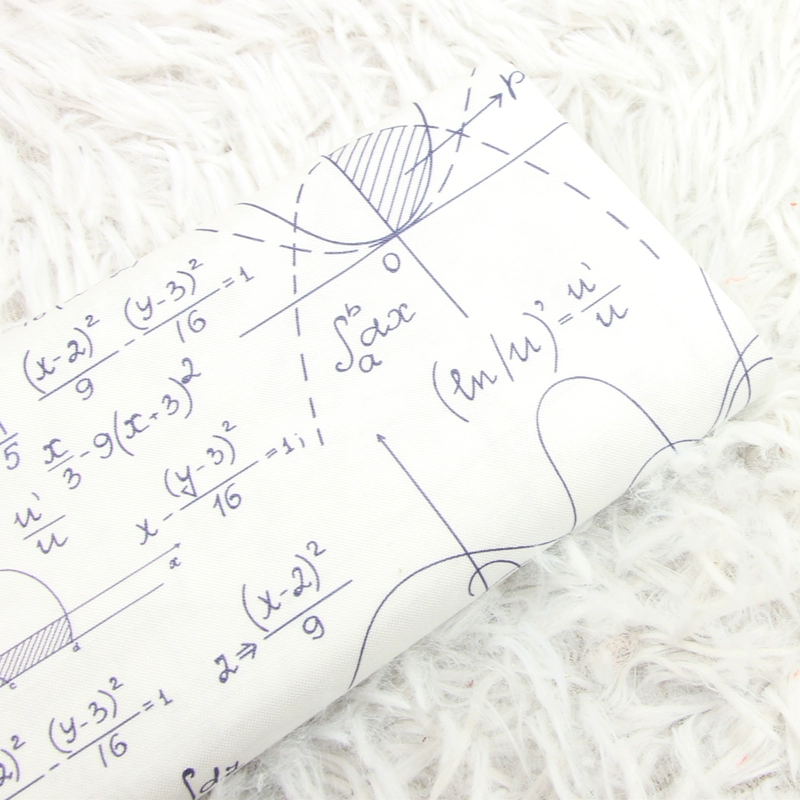 p
0
(x-2)²/9 - (y-3)²/16 = 1
∫ₐᵇ dx
(ln|u|)' = u'/u
1/5 x/3 - 9(x+3)²
x - (y-3)²/16 = 1;
u'/u
x
2 ⇒ (x-2)²/9
c d
2)² - (y-3)²/16 = 1
∫dx